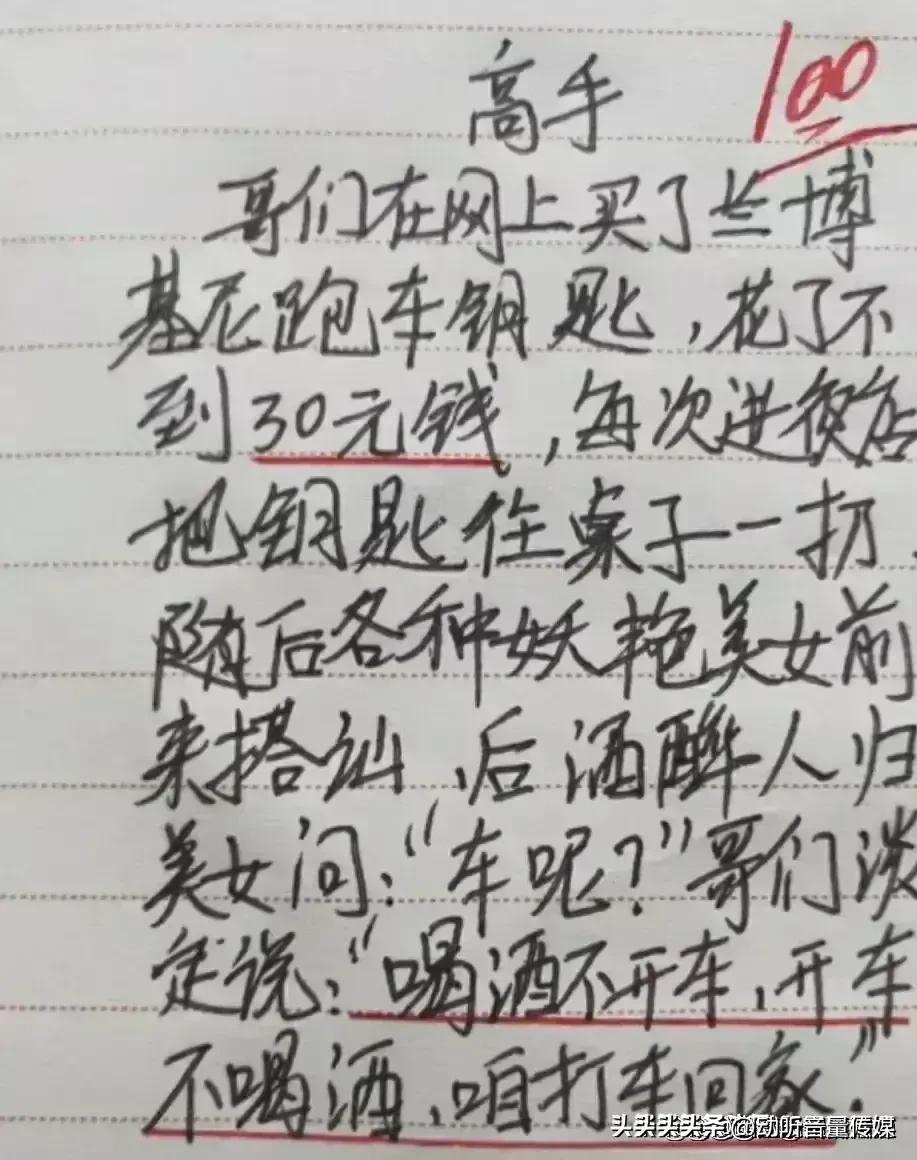 高手
100
哥们在网上买了兰博
基尼跑车钥匙,花了不
到30元钱,每次进夜店
把钥匙往桌子一扔.
随后各种妖艳美女前
来搭讪,后酒醉人归
美女问:“车呢?”哥们淡
定说:“喝酒不开车,开车
不喝酒,咱打车回家.”
@动听音量传媒